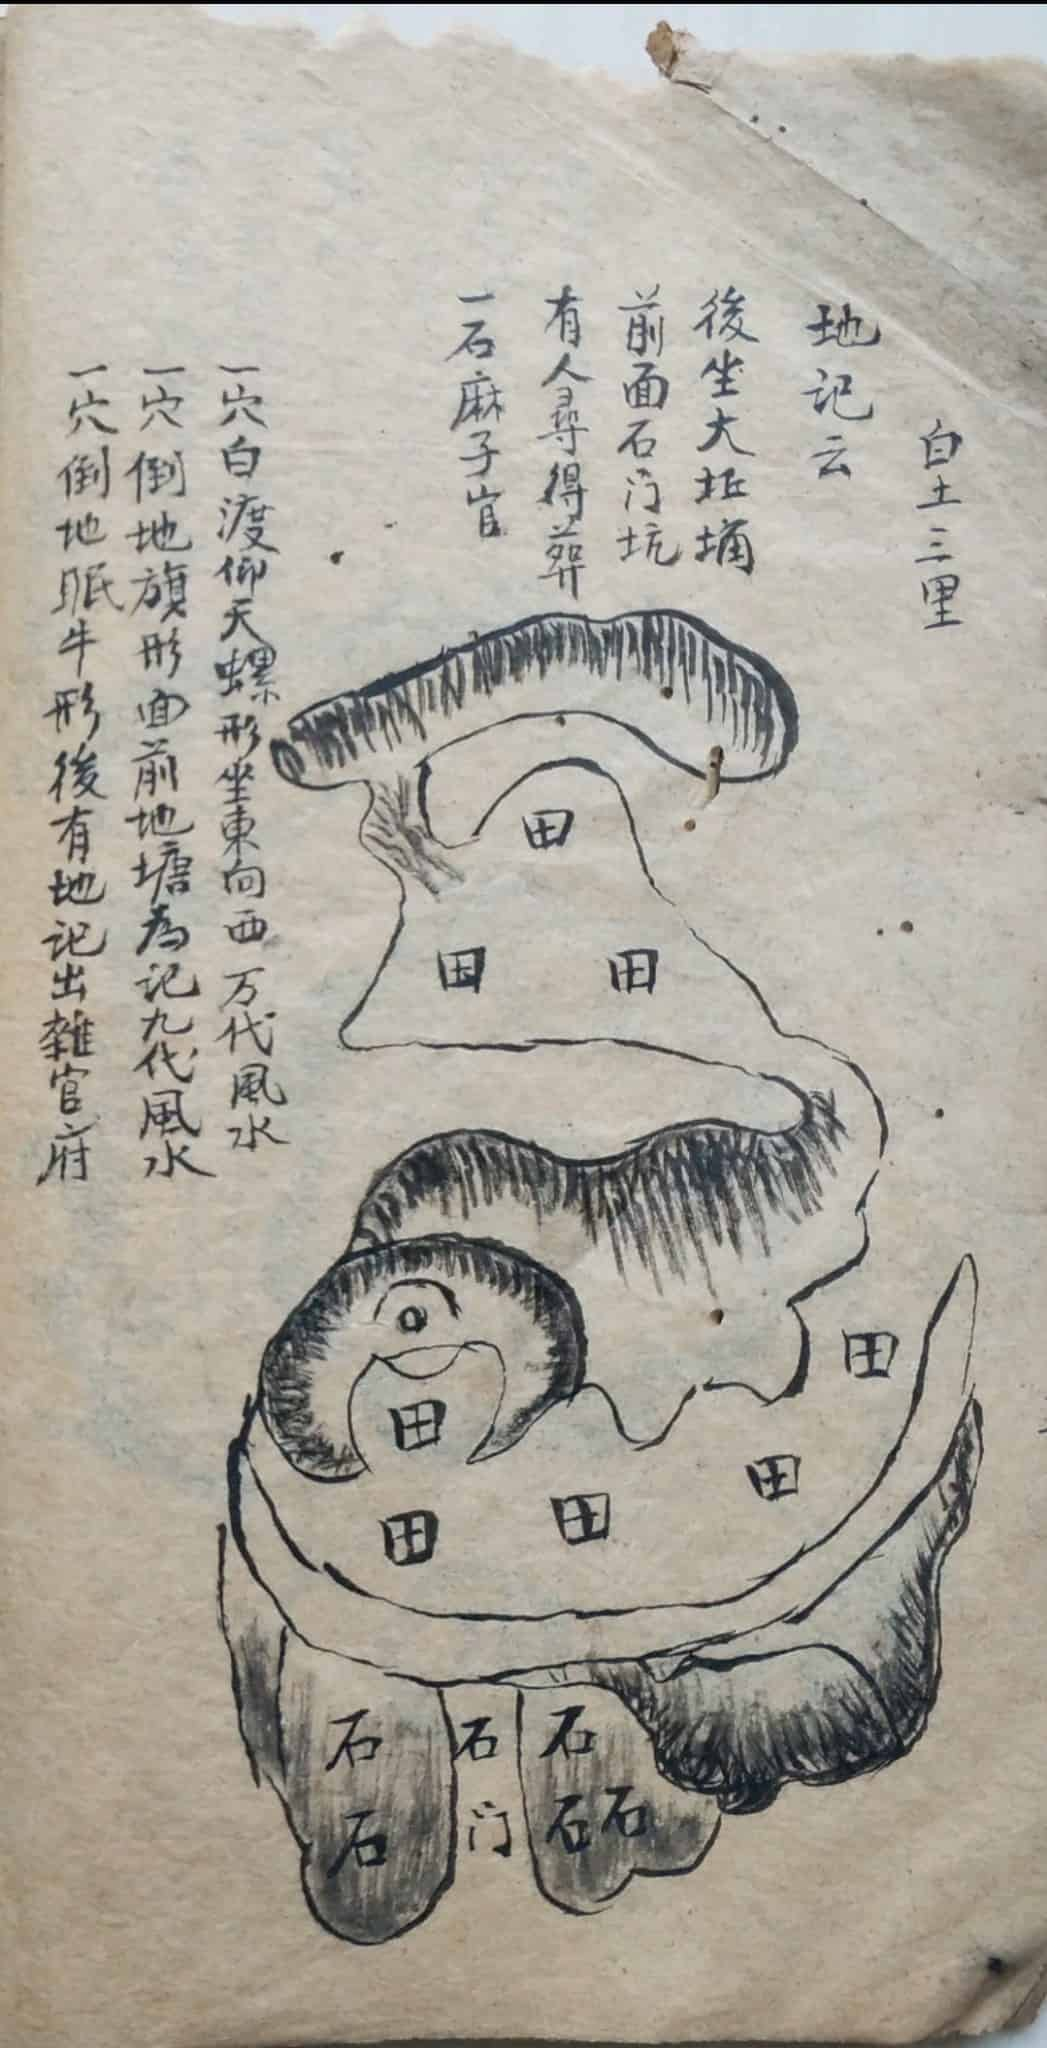 白土三里
地记云
後坐大坵墉
前面石门坑
有人尋得葬
一石麻子官
一穴白渡仰天螺形坐東向西万代風水
一穴倒地旗形面前地塘為记九代風水
一穴倒地眠牛形後有地记出雜官府
田
田
田
田
田
田
田
田
石
石
石
石
石
石门